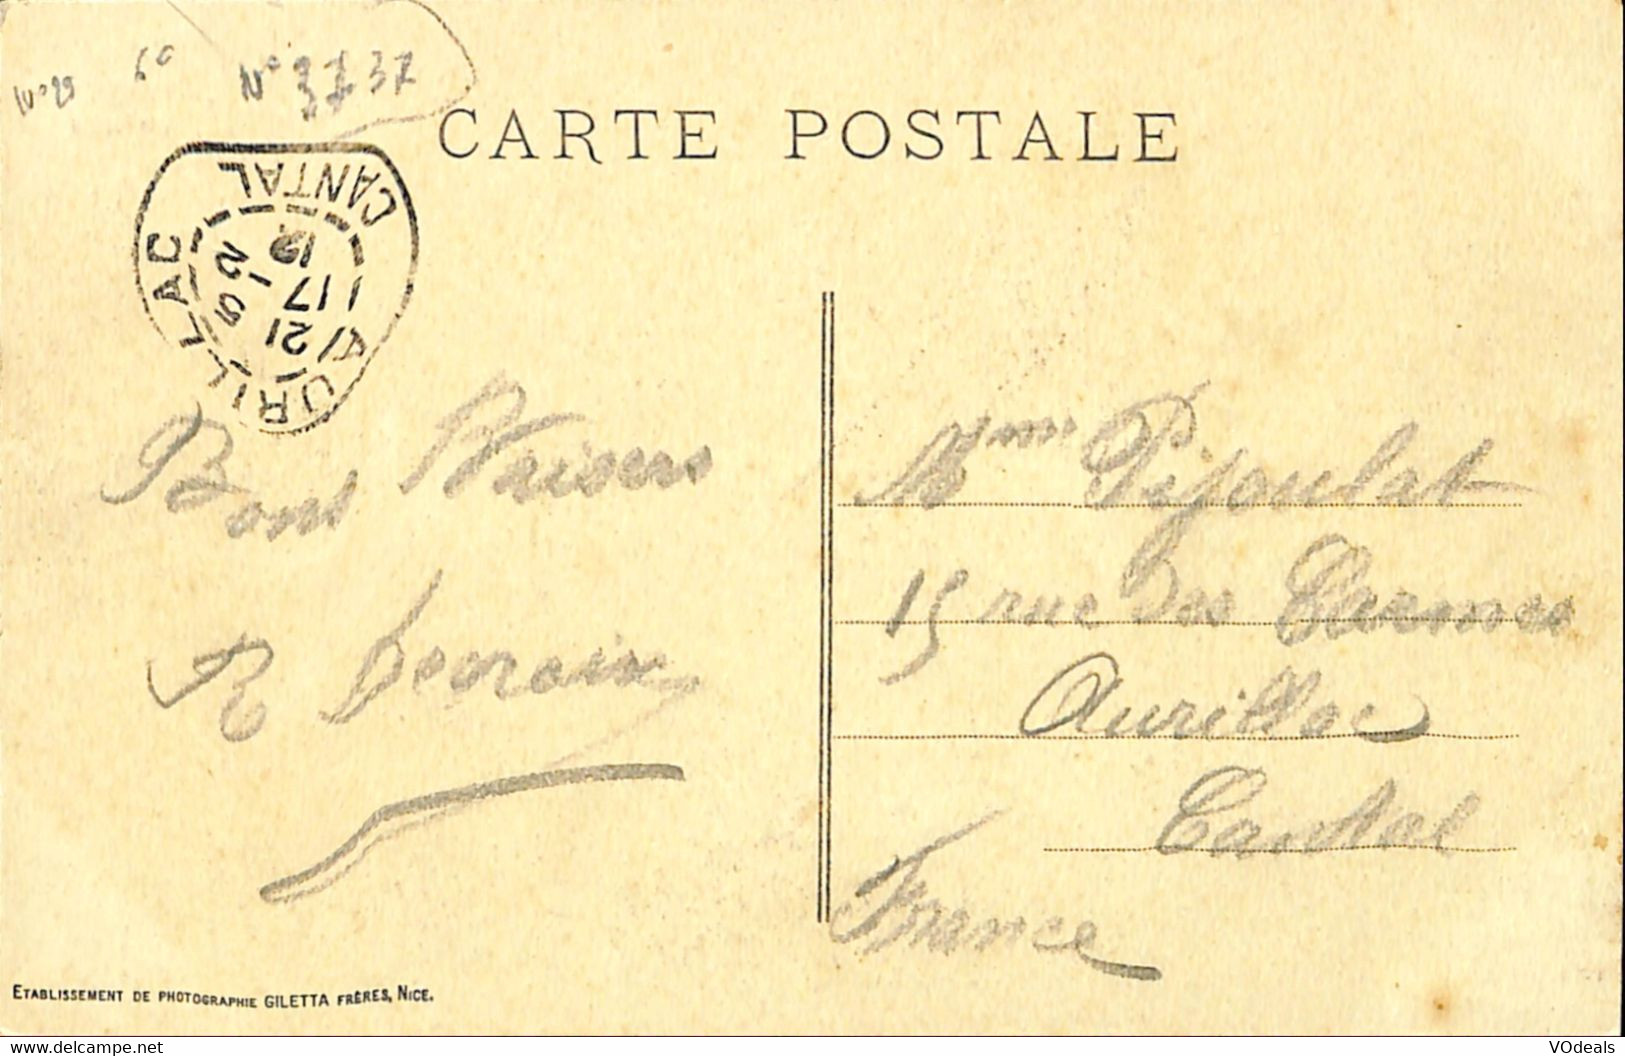 N° 3737
60
CARTE POSTALE
AURILLAC
CANTAL
21
17
12
Bons Baisers
R
Mme Pijoulat
15 rue des Carmes
Aurillac
Cantal
France
ETABLISSEMENT DE PHOTOGRAPHIE GILETTA FRÈRES, NICE.
http://www.delcampe.net
VOdeals